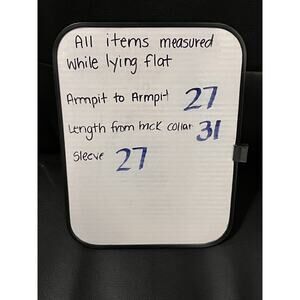 All items measured
while lying flat
Armpit to Armpit 27
Length from back collar 31
Sleeve 27